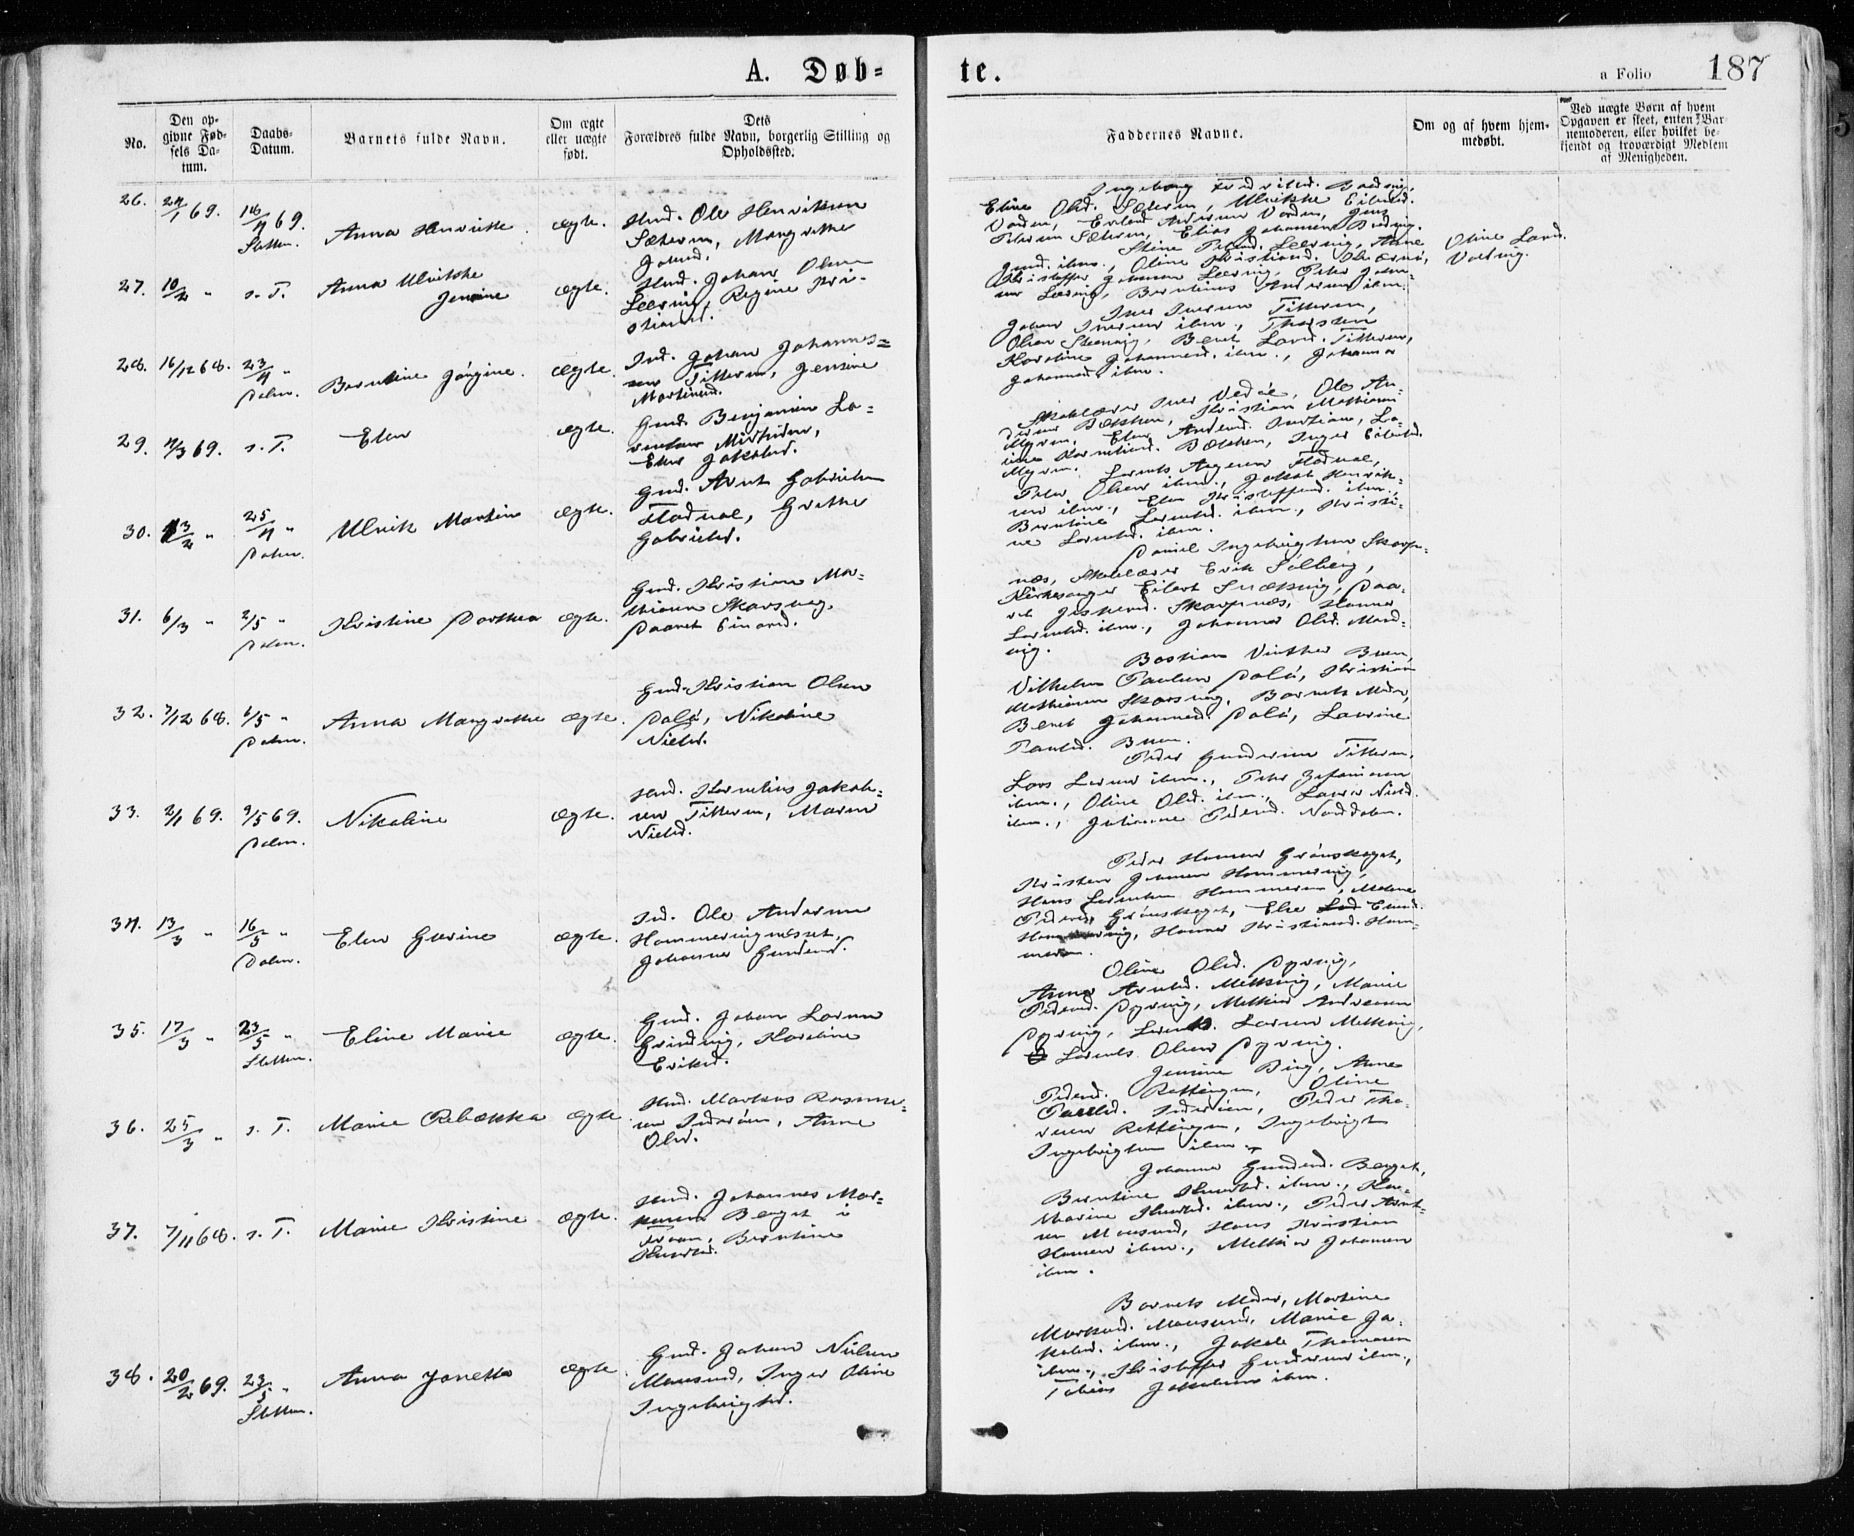 A. Døb-
te.
a Folio 187
No.
Den op-
givne Fød-
sels Da-
tum.
Daabs-
Datum.
Barnets fulde Navn.
Om ægte
eller uægte
født.
Dets
Forældres fulde Navn, borgerlig Stilling og
Opholdssted.
Faddernes Navne.
Om og af hvem hjem-
medøbt.
Ved uægte Børn af hvem
Opgaven er skeet, enten Bar-
nemoderen, eller hvilket be-
kjendt og troværdigt Medlem
af Menigheden.
26. 24/1 69. 18/4 69.
Sletten.
Anna Henrikke. ægte.
Hmd. Ole Henriksen
Sæteren, Margrethe
Johnd.
Eline Olsd. Sæteren, Ulrikke Eilertsd.
Petersen Sæteren, Elias Johansen
27. 10/2 " s. T. Anna Ulrikke
Jensine ægte.
Hmd. Johan Olsen
Leervig, Regine Kri-
stiansd.
Kristoffer Johansen Leervig, Peter Johan-
sen Leervig, Berntinus Andersen ibm.
Oline Larsd.
Valvig.
28. 16/12 68. 23/4 "
Dolm.
Berntine Jørgine. ægte.
Ind. Johan Johannes-
sen Titteren, Jensine
Martinsd.
Iver Iversen Titteren,
Johan Iversen ibm., Thorsten
Olsen Steensvig, Beret Larsd. Titteren,
Karoline Johannesd. ibm., Johanna
Johannesd. ibm.
29. 4/3 69. s. T. Elen ægte.
Gmd. Benjamin La-
Elen Jakobsd.
Skolelærer Iver Vedøe, Ole An-
dersen Bekken, Kristian Mathiasen
Myren, Elen Andersd.
Myren.
30. 13/2 " 25/4 "
Dolm.
Ulrik Martin ægte.
Gmd. Arnt Gabrielsen
Flatval, Grethe
Gabrielsd.
Lorents Aagesen Flatval,
Peter Olsen ibm., Jakob Henrik-
sen ibm., Elen Kristoffersd. ibm.,
Berntine Lorentsd. ibm., Kristi-
ne Lorentsd. ibm.
31. 6/3 " 2/5 "
Dolm.
Kristine Dorthea ægte.
Gmd. Kristian Ma-
thiasen Skarsvaag,
Daaret Einarsd.
Daniel Ingebrigtsen Skarp-
næs, Skolelærer Erik Solberg,
Kirkesanger Eilert Snæksvig, Daa-
ret Jespersd. Skarpnæs, Hanna
Lorentsd. ibm., Johanna Olsd. Mand-
vig.
32. 7/12 68. 6/5 "
Dolm.
Anna Margrethe ægte.
Gmd. Kristian Olsen
Dolø, Nikoline
Nielsd.
Bastian Vinther Buen,
Vilhelm Paulsen Dolø, Kristian
Mathiasen Skarsvaag, Barnets Moder,
Beret Johannesd. Dolø, Laurine
Paulsd. Buen.
33. 2/1 69. 9/5 69.
Dolm.
Nikoline ægte.
Hmd. Kornelius Jakob-
sen Titteren, Maren
Nielsd.
Peder Gundersen Titteren,
Lars Larsen ibm., Peter Zefaniasen
ibm., Oline Olsd. ibm., Laura Nielsd.
ibm., Julianne Pedersd. Norddolm.
34. 13/3 " 16/5 "
Dolm.
Elen Gurine ægte.
Ind. Ole Andersen
Hammervignæsset,
Johanna Gundersd.
Peder Hansen Grønskaget,
Kristen Johansen Hammervig,
Hans Lorentsen Hammeren, Malene
Pedersd. Grønskaget, Else
Hammervig, Hanna Kristiansd. Ham-
meren.
35. 17/3 " 23/5 "
Sletten.
Eline Marie ægte.
Gmd. Johan Larsen
Grindvig, Karoline
Eriksd.
Oline Olsd. Dyrvig,
Anna Arntsd. Melkvig, Marie
Pedersd. Dyrvig, Melkior Andreasen
Dyrvig, Lorents Larsen Melkvig,
Lorents Olsen Dyrvig.
36. 25/3 " s. T. Marie Rebækka ægte.
Hmd. Markus Rasmus-
sen Inderøen, Anne
Olsd.
Jensine Ping, Anne
Pedersd. Rottingen, Oline
Paulsd. Inderøen, Peder Tho-
resen Rottingen, Ingebrigt
Ingebrigtsen ibm.
37. 7/11 68. s. T. Marie Kristine ægte.
Hmd. Johannes Mar-
kussen Berget i
Froan, Berntine
Johanna Gundersd. Berget,
Berntine ibm., Kar-
ibm., Peder Arnt-
sen Mausund, Hans Kristian
Hansen ibm., Melkior Johansen
ibm.
38. 20/2 69. 23/5 "
Sletten.
Anna Janetta ægte.
Gmd. Johan Nielsen
Mausund, Inger Oline
Ingebrigtsd.
Barnets Moder, Martine
Markusd. Mausund, Marie Ja-
kobsd. ibm., Jakob Thomasen
ibm., Kristoffer Gundersen ibm.,
Tobias Jakobsen ibm.